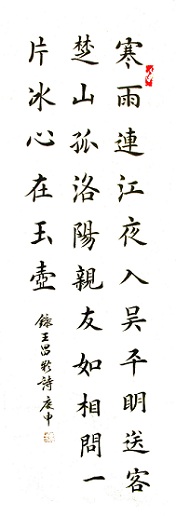 寒雨連江夜入吳平明送客
楚山孤洛陽親友如相問一
片冰心在玉壺
錄王昌齡詩庚申